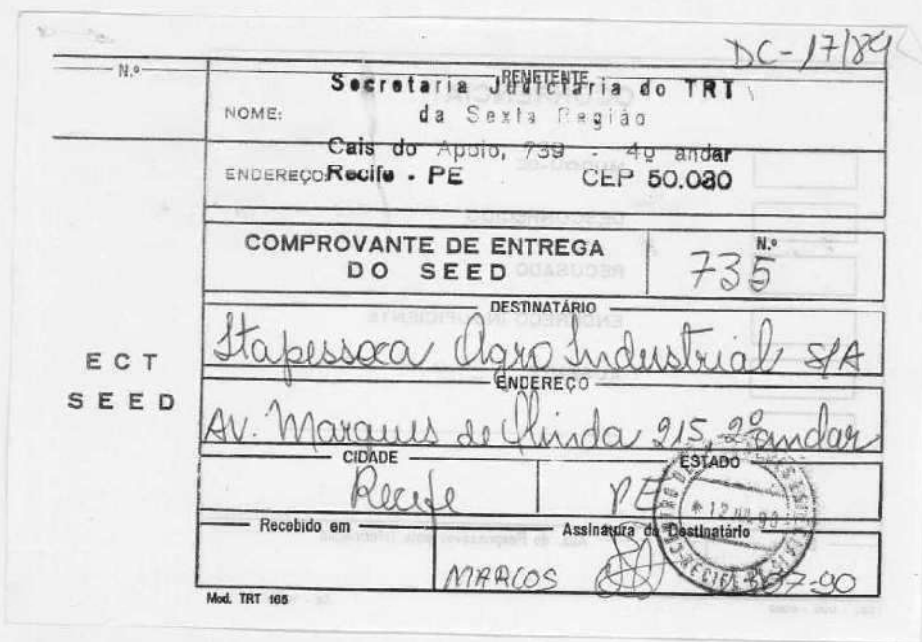 DC-17/89
N.º
REMETENTE
Secretaria Judiciária do TRT
NOME: da Sexta Região
Cais do Apolo, 739 - 4º andar
ENDEREÇO: Recife - PE CEP 50.030
COMPROVANTE DE ENTREGA
DO SEED
N.º
735
DESTINATÁRIO
Itapessoca Agro Industrial S/A
ECT
SEED
ENDEREÇO
Av. Marques de Olinda 215, 2º andar
CIDADE
Recife
ESTADO
PE
Recebido em
Assinatura do Destinatário
MARCOS
07-90
Mod. TRT 165